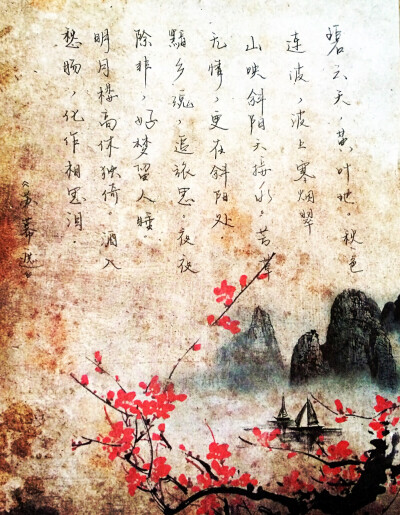 碧云天，黄叶地。秋色
连波，波上寒烟翠
山映斜阳天接水。芳草
无情，更在斜阳处
黯乡魂，追旅思。夜夜
除非，好梦留人睡
明月楼高休独倚。酒入
愁肠，化作相思泪。
《苏幕遮》